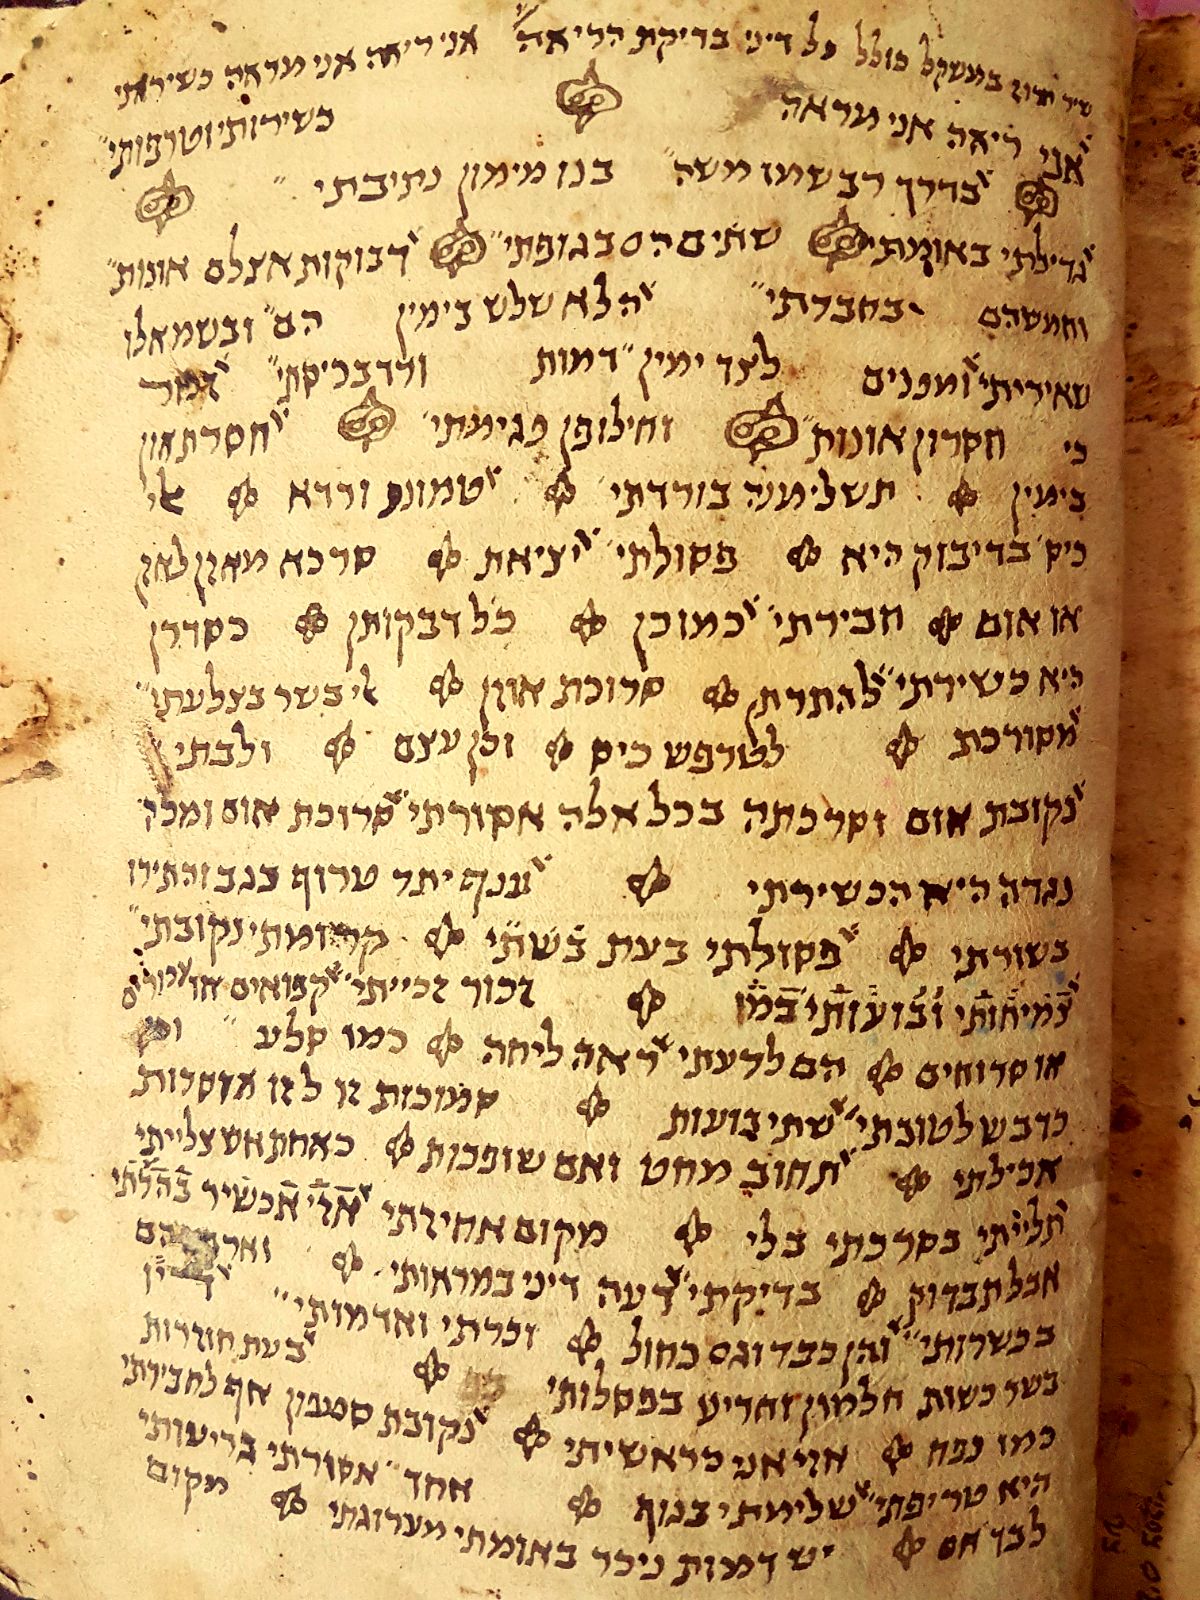 שיר חרוז במשקל כולל כל דיני בדיקת הריאה אני ריאה אני מראה כשירותי
אני ריאה אני מראה כשירותי וטרפותי
בדרך רב שמו משה בנו מימון נתיבתי
גדילתי באומתי שתים הם בגופתי דבוקות אצלם אונות
וחמשהם בחברתי הלא שלש בימין הם ובשמאלו
שאיריתי ומפנים לצד ימין דמות ורדבריסתי
כי חסרון אונות וחילופן פגימתי חסרת און
בימין תשלימנה בורדתי טמונת ורדא אלי
כיס בדיבוק היא פסולתי יציאת סרכא מאון לאון
או אום חבירתי כמו כן כל דבקותן כסדרן
היא כשירתי להתרת סרוכת און אלי בשר בצלעתי
מסורכת לטרפש כיס וכן עצם ולבתי
נקובת אום וסרכתה בכל אלה אסורתי סרוכת אום ומכה
נגדה היא הכשירתי ענף יתר טרוף בגב והתירו
בשורתי פסולתי בעת בשתי קרומתי נקובתי
צמיחותי ובועותי במו זכור זכייתי קפואים או
או סרוחים הם לדעתי ראה ליחה כמו סלע
כדבש לטובתי שתי בועות סמוכות זו לזו אוסרות
אכילתי תחוב מחט ואם שופכות כאחת אש צלייתי
תלייתי בסרכתי בלי מקום אחיזתי אזי אכשיר
אבל תבדוק בדיקתי דעה דיני במראותי
בכשרותי והן כבד וגם כחול וכרתי ואדמותי
בשר כשות חלמון וחריע בפסלותי בעת חוזרות
כמו נפח אזי אני כראשיתי נקובת סמפון אף לחבירתי
היא טריפתי שלימתי בגוף אחד אסורתי בריעותי
לבד חם יש דמות ניכר באומתי מערוגתי מקום